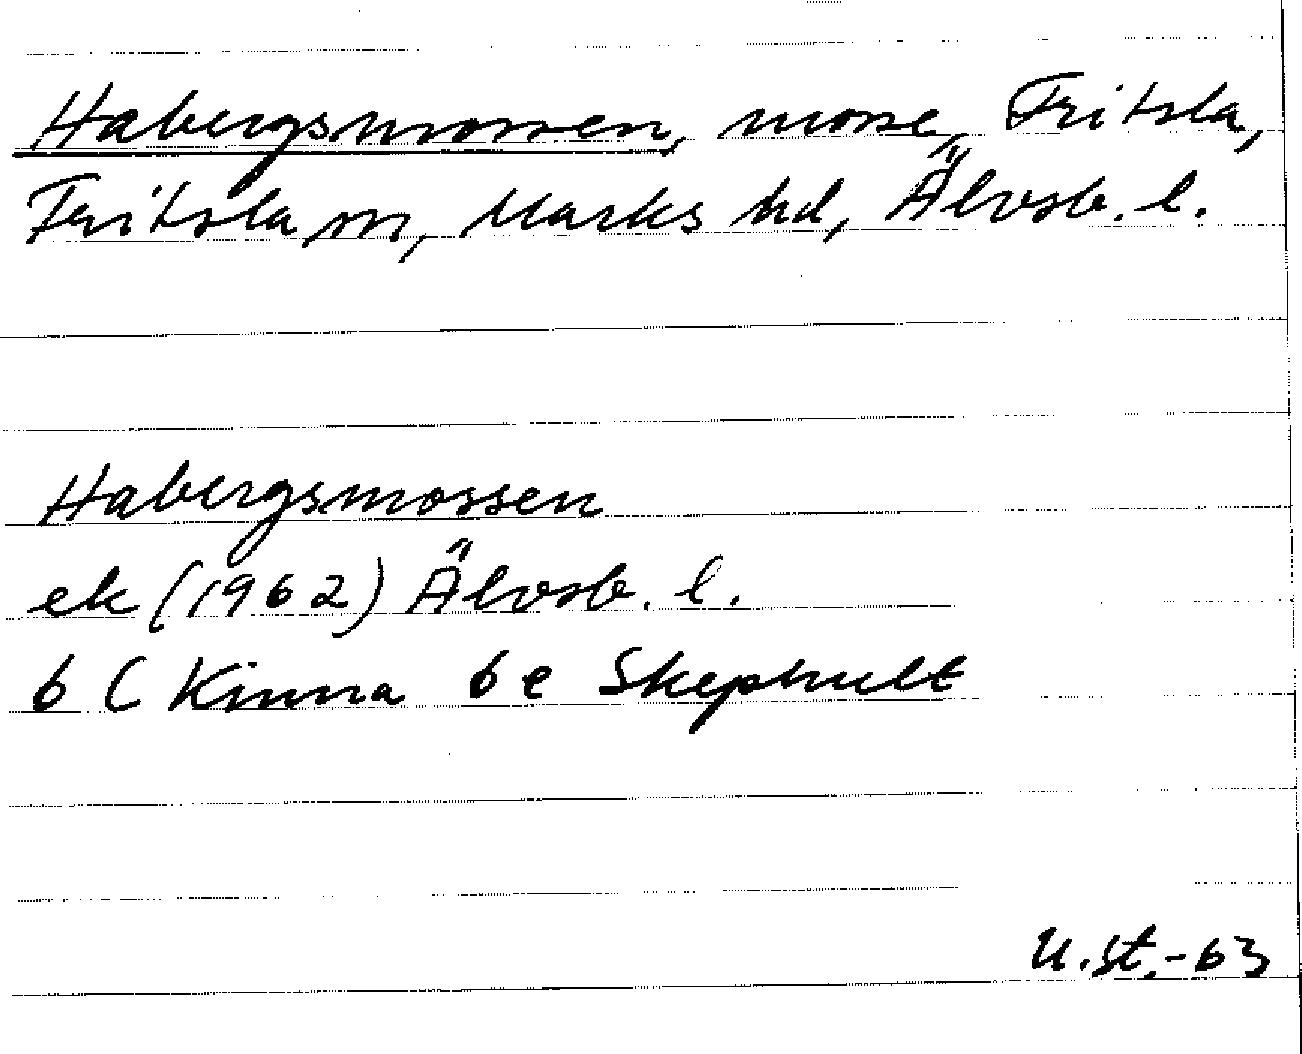 Habergsmossen, mosse, Fritsla,
Fritsla sn, Marks hd, Älvsb. l.
Habergsmossen
ek (1962) Älvsb. l.
6 C Kinna 6 e Skephult
U.St.-63